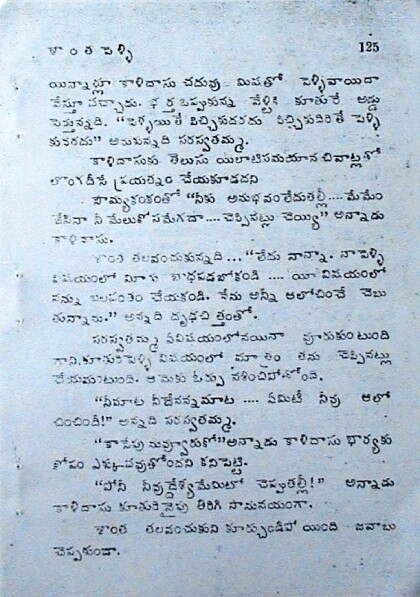 శాంత పెళ్ళి 125
యిన్నాళ్లూ కాళిదాసు చదువు మిషతో పెళ్ళివాయిదా
వేస్తూ వచ్చాడు. భర్త ఒప్పుకున్న వేళ్టికి కూతురే అడ్డు
పెళ్ళయితే పిచ్చికుదరదు పిచ్చికుదిరితే పెళ్ళి
కుదరదు" అనుకున్నది సరస్వతమ్మ.
కాళిదాసుకు తెలుసు యిలాటిసమయాన చివాట్లతో
లొంగదీసే ప్రయత్నం చేయకూడదని
సౌమ్యకంఠంతో "నీకు అనుభవంలేదుతల్లీ.... మేమేం
చేసినా నీ మేలుకోసమేగదా.... చెప్పినట్లు చెయ్యి" అన్నాడు
కాళిదాసు.
శాంత తలవంచుకున్నది... "లేదు నాన్నా. నాపెళ్ళి
విషయంలో మీరు శ్రమపడబోకండి .... యీ విషయంలో
నన్ను బలవంతం చేయకండి. నేను అన్నీ ఆలోచించే చెబు
తున్నాను." అన్నది దృఢచిత్తంతో.
సరస్వతమ్మ ఏవిషయంలోనయినా వూరుకుంటుంది
గాని, కూతురిపెళ్ళి విషయంలో మాత్రం తను చెప్పినట్లు
చేయమంటుంది. ఆమెకు ఓర్పు నశించిపోతోంది.
"నీమాట నీదేనన్నమాట .... ఏమిటీ నీవు ఆలో
చించింది!" అన్నది సరస్వతమ్మ.
"కాసేపు నువ్వూరుకో" అన్నాడు కాళిదాసు భార్యకు
కోపం ఎక్కువవుతోందని కనిపెట్టి.
"పోనీ నీవుద్దేశ్యమేమిటో చెప్పుతల్లీ!" అన్నాడు
కాళిదాసు కూతురివైపు తిరిగి సానునయంగా.
శాంత తలవంచుకుని కూర్చుండిపోయింది జవాబు
చెప్పకుండా.